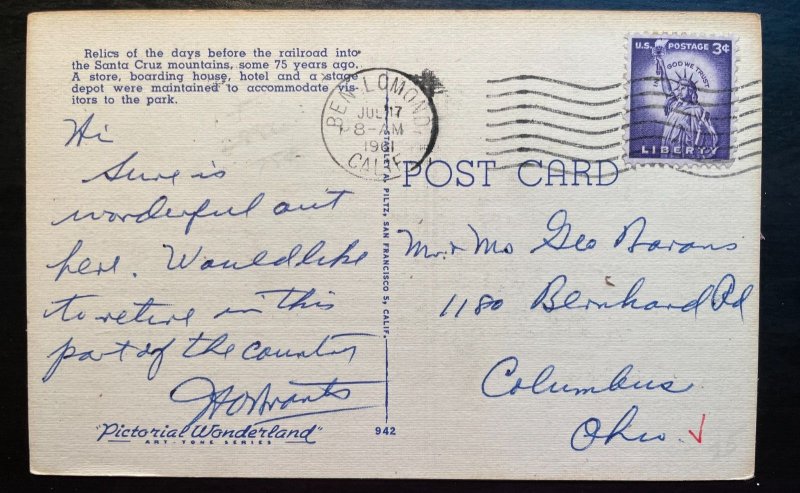 Relics of the days before the railroad into
the Santa Cruz mountains, some 75 years ago.
A store, boarding house, hotel and a stage
depot were maintained to accommodate vis-
itors to the park.
Hi
Sure is
wonderful out
here. Would like
to retire in this
part of the country
"Pictorial Wonderland"
ART-TONE SERIES
942
STANLEY A. PILTZ, SAN FRANCISCO 5, CALIF.
BEN LOMOND
JUL 17
8-AM
1961
CALIF.
U.S. POSTAGE 3¢
IN GOD WE TRUST
LIBERTY
POST CARD
Mr. & Mrs Geo Barans
1180 Bernhard Rd
Columbus
Ohio